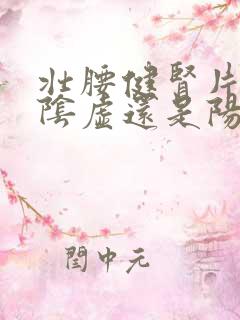 壯腰健腎片
陰虛還是陽
閏中元